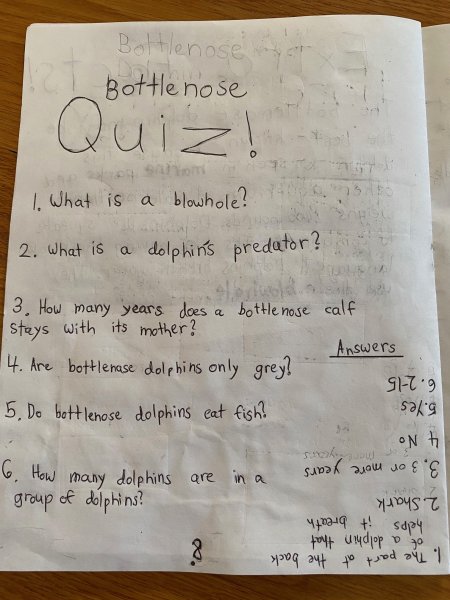 Bottlenose
Bottlenose
Quiz!
1. What is a blowhole?
2. What is a dolphin's predator?
3. How many years does a bottlenose calf
stays with its mother?
4. Are bottlenose dolphins only grey?
5. Do bottlenose dolphins eat fish?
6. How many dolphins are in a
group of dolphins?
Answers
1. The part at the back
of a dolphin that
helps it breath
2. Shark
3. 3 or more years
4 No
5. Yes
6. 2-15
8